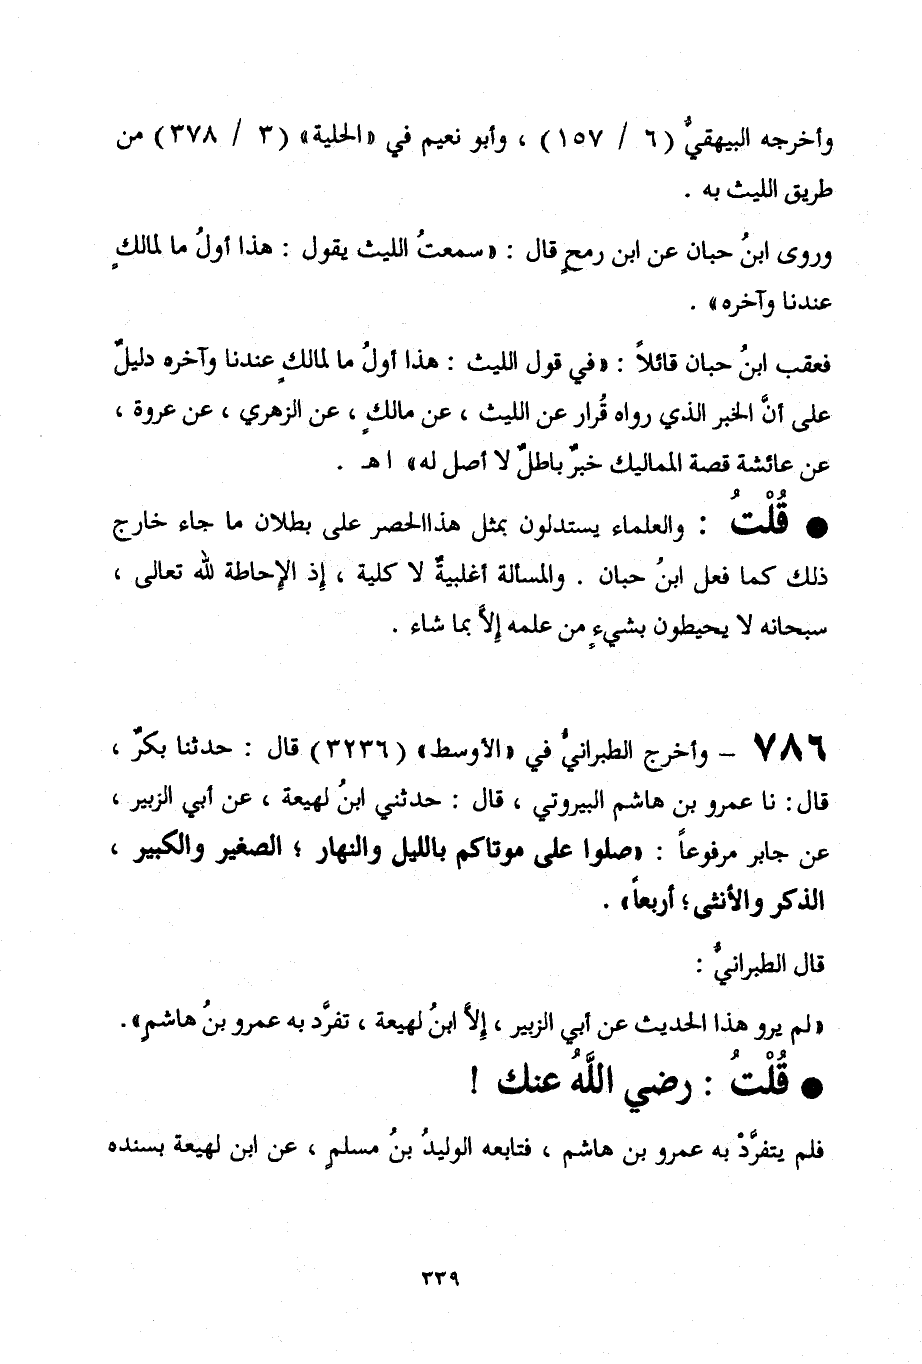 وأخرجه البيهقيُّ (٦ / ١٥٧) ، وأبو نعيم في «الحلية» (٣ / ٣٧٨) من
طريق الليث به .
وروى ابنُ حبان عن ابن رمحٍ قال : «سمعتُ الليث يقول : هذا أولُ ما لمالكٍ
عندنا وآخره» .
فعقب ابنُ حبان قائلاً : «في قول الليث : هذا أولُ ما لمالكٍ عندنا وآخره دليلٌ
على أنَّ الخبر الذي رواه قُرار عن الليث ، عن مالكٍ ، عن الزهري ، عن عروة ،
عن عائشة قصة المماليك خبرٌ باطلٌ لا أصل له» ا هـ .
● قُلْتُ : والعلماء يستدلون بمثل هذاالحصر على بطلان ما جاء خارج
ذلك كما فعل ابنُ حبان . والمسألة أغلبيةٌ لا كلية ، إذ الإحاطة لله تعالى ،
سبحانه لا يحيطون بشيءٍ من علمه إلاَّ بما شاء .
٧٨٦ – وأخرج الطبرانيُّ في «الأوسط» (٣٢٣٦) قال : حدثنا بكرٌ ،
قال: نا عمرو بن هاشم البيروتي ، قال : حدثني ابنُ لهيعة ، عن أبي الزبير ،
عن جابر مرفوعاً : «صلوا على موتاكم بالليل والنهار ؛ الصغير والكبير ،
الذكر والأنثى؛ أربعاً» .
قال الطبرانيُّ :
«لم يرو هذا الحديث عن أبي الزبير ، إلاَّ ابنُ لهيعة ، تفرَّد به عمرو بنُ هاشمٍ».
● قُلْتُ : رضي اللَّهُ عنك !
فلم يتفرَّدْ به عمرو بن هاشم ، فتابعه الوليدُ بنُ مسلمٍ ، عن ابن لهيعة بسنده
٣٣٩